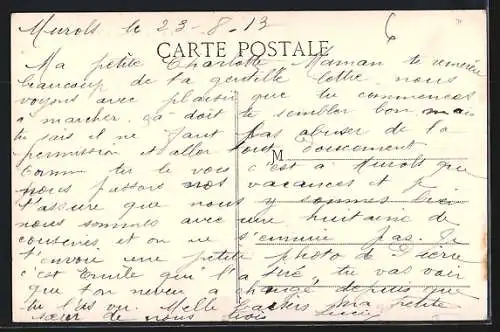 Murols le 23-8.13
6
CARTE POSTALE
Ma petite Charlotte, Maman te remercie
beaucoup de ta gentille lettre nous
voyons avec plaisir que tu commences
a marcher. ça doit te sembler bon mais
tu sais il ne faut pas abuser de la
permission et aller tout doucement
M
Comme tu le vois c'est à Murols que
nous passons nos vacances et je
t'assure que nous y sommes bien
nous sommes avec une huitaine de
et on ne s'ennuie pas. Je
t'envoie une petite photo de Pierre
c'est Emile qui l'a tiré, tu vas voir
que ton neveu a changé depuis que
tu l'as vu. Melle ma petite
sœur de nous trois Lucie